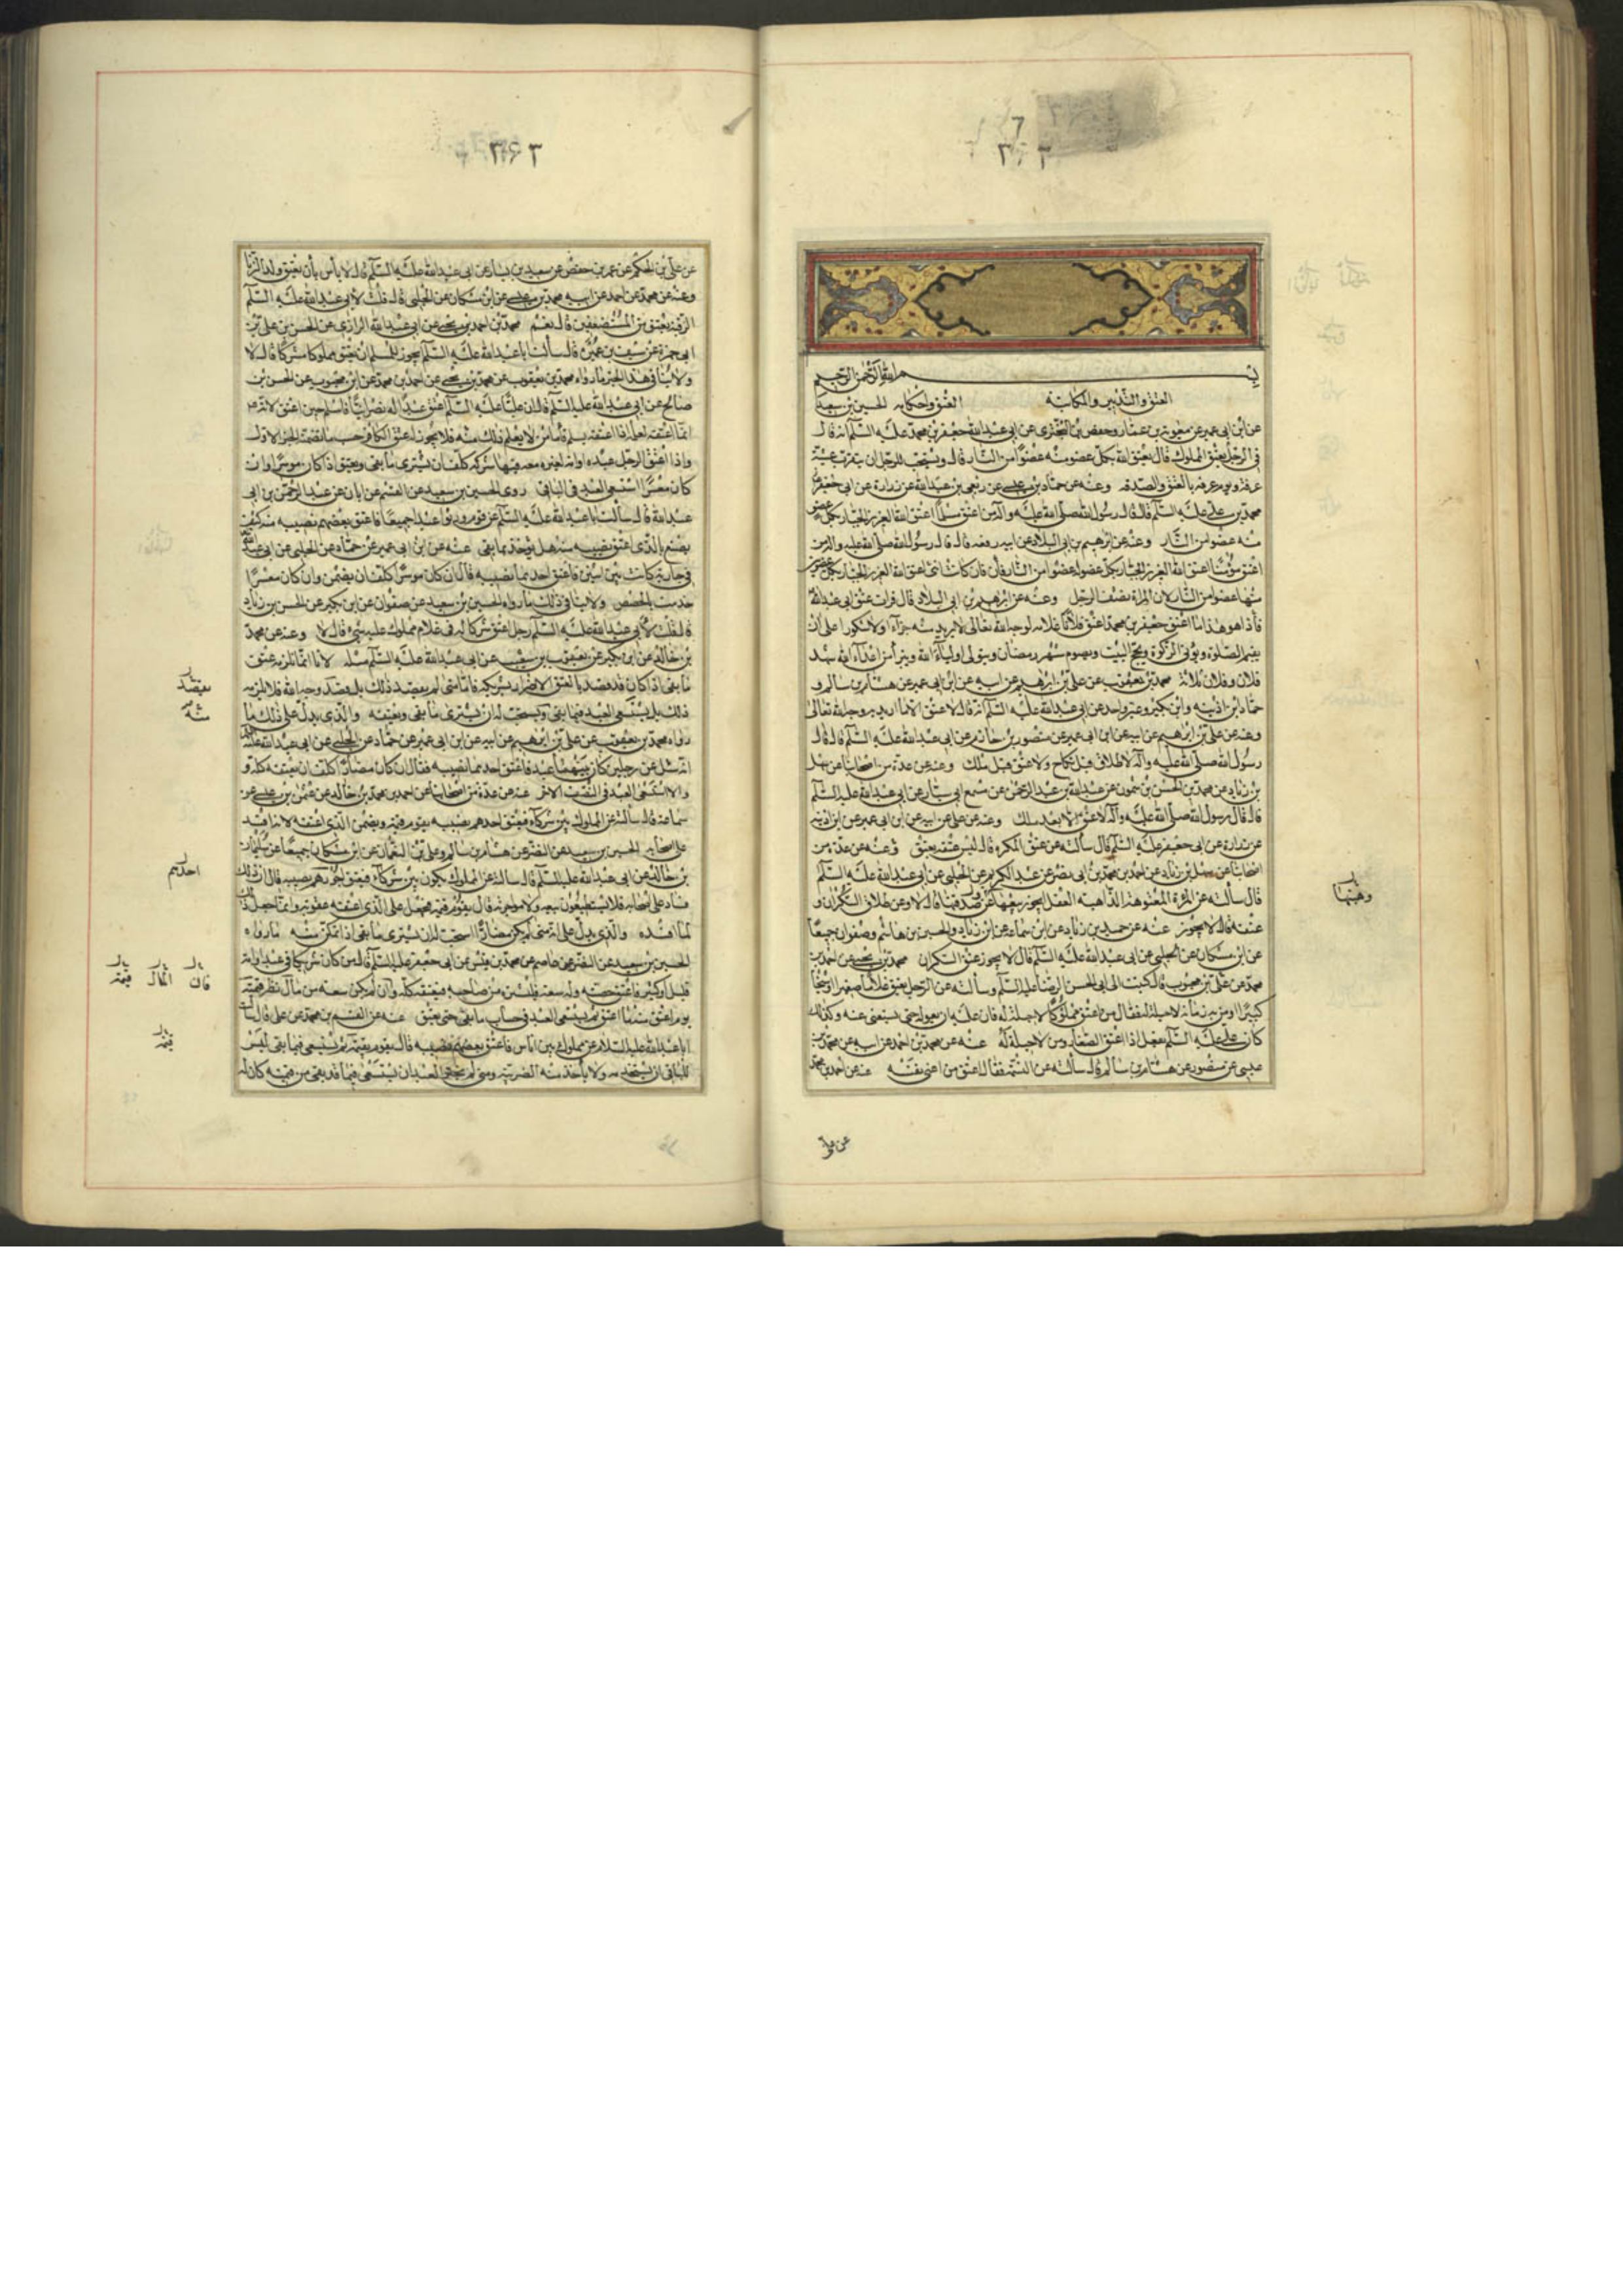 ٣٦٣
بسم الله الرحمن الرحيم
العتق والتدبير والمكاتبة العتق واحكامه الحسين بن سعيد
عن ابن ابي عمير عن معوية بن عمار وحفص بن البختري عن ابي عبد الله جعفر بن محمد عليه السلم انه قال
في الرجل يعتق المملوك قال يعتق الله بكل عضو منه عضوا من النار قال ويستحب للرجل ان يتقرب عشية
عرفة ويوم عرفة بالعتق والصدقة وعنه عن حماد بن عيسى عن ربعي بن عبد الله عن زرارة عن ابي جعفر
محمد بن علي عليه السلم قال قال رسول الله صلى الله عليه واله من اعتق مسلما اعتق الله العزيز الجبار بكل عضو
منه عضوا من النار وعنه عن ابرهيم بن ابي البلاد عن ابيه رفعه قال قال رسول الله صلى الله عليه واله من
اعتق مؤمنا اعتق الله العزيز الجبار بكل عضو له عضوا من النار فان كانت انثى اعتق الله العزيز الجبار بكل عضوين
منها عضوا من النار لان المراة نصف الرجل وعنه عن ابرهيم بن ابي البلاد قال قرات عتق ابي عبد الله
فاذا هو هذا ما اعتق جعفر بن محمد اعتق فلانا غلامه لوجه الله تعالى لا يريد منه جزآء ولا شكورا على ان
يقيم الصلوة ويؤتي الزكوة ويحج البيت ويصوم شهر رمضان ويتولى اوليآء الله ويتبرأ من اعدآء الله شهد
فلان وفلان وفلان ثلاثة محمد بن يعقوب عن علي بن ابرهيم عن ابيه عن ابن ابي عمير عن هشام بن سالم و
حماد وابن اذينة وابن بكير وغير واحد عن ابي عبد الله عليه السلم انه قال لا عتق الا ما اريد به وجه الله تعالى
وعنه عن علي بن ابرهيم عن ابيه عن ابن ابي عمير عن منصور بن حازم عن ابي عبد الله عليه السلم قال قال
رسول الله صلى الله عليه وآله لا طلاق قبل نكاح ولا عتق قبل ملك وعنه عن عدة من اصحابنا عن سهل
بن زياد عن محمد بن الحسن بن شمون عن عبد الله بن عبد الرحمن عن مسمع ابي سيار عن ابي عبد الله عليه السلم
قال قال رسول الله صلى الله عليه وآله لا عتق الا بعد ملك وعنه عن علي عن ابيه عن ابن ابي عمير عن ابن اذينة
عن زرارة عن ابي جعفر عليه السلم قال سألته عن عتق المكره قال ليس عتقه بعتق وعنه عن عدة من
اصحابنا عن سهل بن زياد عن احمد بن محمد بن ابي نصر عن عبد الكريم عن الحلبي عن ابي عبد الله عليه السلم
قال سألته عن المرأة المعتوهة الذاهبة العقل ايجوز بيعها وصدقتها قال لا وعن طلاق السكران و
عتقه قال لا يجوز عنه عن حميد بن زياد عن ابن سماعة عن ابن زياد والحسين بن هاشم وصفوان جميعا
عن ابن مسكان عن الحلبي عن ابي عبد الله عليه السلم قال لا يجوز عتق السكران محمد بن يحيى عن احمد بن
محمد عن علي بن محبوب قال كتبت الى ابي الحسن الرضا عليه السلم وسألته عن الرجل يعتق غلاما صغيرا او شيخا
كبيرا او من به زمانة لا حيلة له فقال من اعتق مملوكا لا حيلة له فان عليه ان يعوله حتى يستغني عنه وكذلك
كان علي عليه السلم يفعل اذا اعتق الصغار ومن لا حيلة له عنه عن محمد بن احمد عن ابيه عن محمد بن
عيسى عن منصور عن هشام بن سالم قال سألته عن النسمة فقال اعتق من اغنى نفسه عنه عن احمد بن محمد
عن علي
وهبتها
٣٦٣
عن علي بن الحكم عن عمر بن حفص عن سعيد بن يسار عن ابي عبد الله عليه السلم قال لا بأس بأن يعتق ولد الزنا
وعنه عن محمد عن احمد عن ابيه محمد بن عيسى عن ابن مسكان عن الحلبي قال قلت لأبي عبد الله عليه السلم
الرقبة يعتق من المستضعفين قال نعم محمد بن احمد بن يحيى عن ابي عبد الله الرازي عن الحسن بن علي بن
ابي حمزة عن سيف بن عميرة قال سألت ابا عبد الله عليه السلم ايجوز للمسلم ان يعتق مملوكا مشركا قال لا
ولا ينافي هذا الخبر ما رواه محمد بن يعقوب عن محمد بن يحيى عن احمد بن محمد عن ابن محبوب عن الحسن بن
صالح عن ابي عبد الله عليه السلم قال ان عليا عليه السلم اعتق عبدا له نصرانيا فاسلم حين اعتقه لانه
انما اعتقه لعلمه اذا اعتقه يسلم فأما من لا يعلم ذلك منه فلا يجوز له عتق الكافر حسب ما تضمنه الخبر الاول
واذا اعتق الرجل عبده او امته لغيره معه فيها شركة كلف ان يشتري ما بقي ويعتق اذا كان موسرا وان
كان معسرا استسعي العبد في الباقي روى الحسين بن سعيد عن القسم عن ابان عن عبد الرحمن بن ابي
عبد الله قال سألت ابا عبد الله عليه السلم عن قوم ورثوا عبدا جميعا فاعتق بعضهم نصيبه منه كيف
يصنع بالذي اعتق نصيبه منه هل يؤخذ بما بقي عنه عن ابن ابي عمير عن حماد عن الحلبي عن ابي عبد الله
في جارية كانت بين اثنين فاعتق احدهما نصيبه قال ان كان موسرا كلف ان يضمن وان كان معسرا
خدمت بالحصص ولا ينافي ذلك ما رواه الحسين بن سعيد عن صفوان عن ابن بكير عن الحسن بن زياد
قال قلت لأبي عبد الله عليه السلم رجل اعتق شركا له في غلام مملوك عليه شيء قال لا وعنه عن محمد
بن خالد عن ابن بكير عن يعقوب بن شعيب عن ابي عبد الله عليه السلم مثله لأنا انما نلزمه عتق
ما بقي اذا كان قد قصد بالعتق الاضرار بشريكه فأما متى لم يقصد ذلك بل قصد وجه الله فلا يلزمه
ذلك بل يستسعى العبد فيما بقي ويستحب له ان يشتري ما بقي ويعتقه والذي يدل على ذلك ما
رواه محمد بن يعقوب عن علي بن ابرهيم عن ابيه عن ابن ابي عمير عن حماد عن الحلبي عن ابي عبد الله عليه السلم
انه سئل عن رجلين كان بينهما عبد فاعتق احدهما نصيبه فقال ان كان مضارا كلف ان يعتقه كله و
والا استسعي العبد في النصف الاخر عنه عن عدة من اصحابنا عن احمد بن محمد بن خالد عن عثمن بن عيسى عن
سماعة قال سألته عن المملوك بين شركآء فيعتق احدهم نصيبه يقوم قيمة ويضمن الذي اعتقه لانه افسده
على اصحابه الحسين بن سعيد عن النضر عن هشام بن سالم وعلي بن النعمان عن ابن مسكان جميعا عن سليمان
بن خالد عن ابي عبد الله عليه السلم قال سألته عن المملوك يكون بين شركآء فيعتق احدهم نصيبه قال ان ذلك
فساد على اصحابه فلا يستطيعون بيعه ولا مواجرته قال يقوم قيمة فيجعل على الذي اعتقه عقوبة وانما جعل ذلك
لما افسده والذي يدل على انه متى لم يكن مضارا استحب له ان يشتري ما بقي اذا تمكن منه ما رواه
الحسين بن سعيد عن النضر عن عاصم عن محمد بن قيس عن ابي جعفر عليه السلم قال من كان شريكا في عبد او امة
قليل او كثير فاعتق حصته وله سعة فليشتره من صاحبه فيعتقه كله وان لم يكن سعة من مال نظر قيمته
يوم اعتق منه ما اعتق ثم يستسعى العبد في حساب ما بقي حتى يعتق عنه عن القسم بن محمد عن علي قال سألت
ابا عبد الله عليه السلام عن مملوك بين اناس فاعتق بعضهم نصيبه قال يقوم بقيمة ثم يستسعى فيما بقي ليس
للباقي ان يستخدمه ولا يأخذ منه الضريبة ومتى لم يختر العبد ان يستسعى فيما قد بقي من قيمته كان له
يقصد
احدهم
فان المال قيمته
قيمة